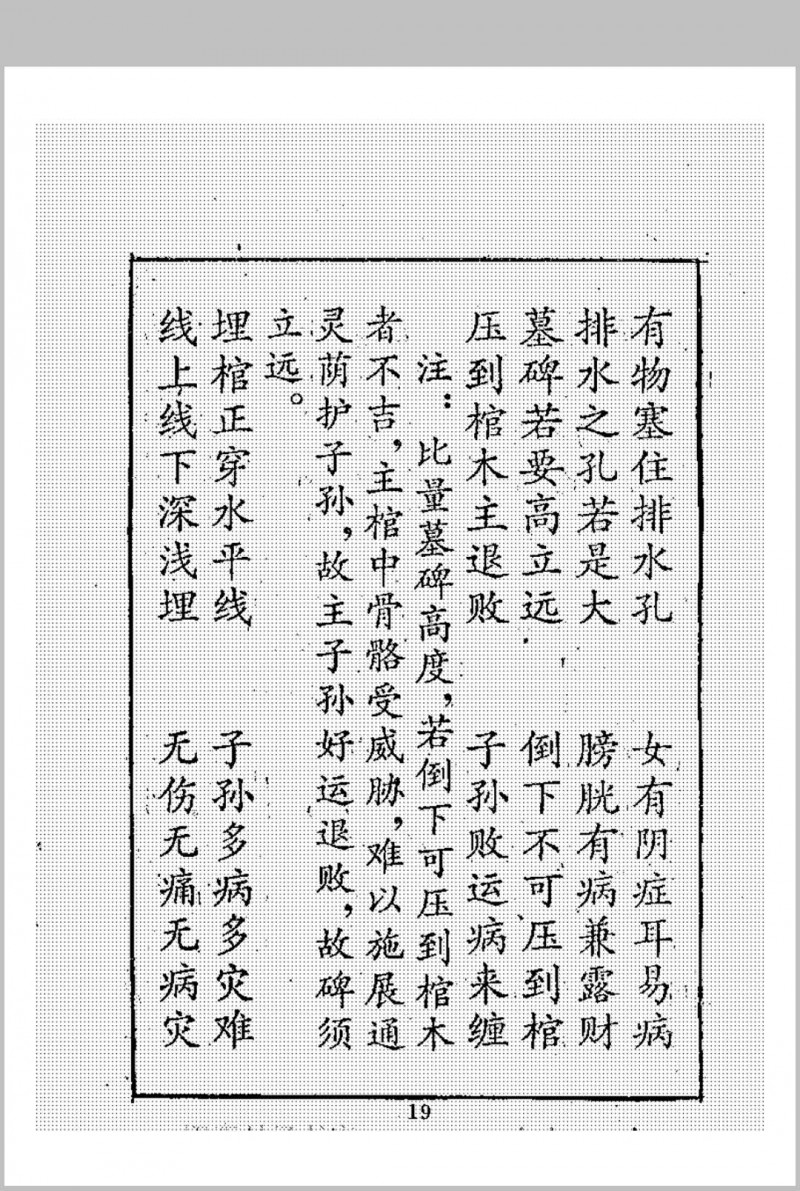 有物塞住排水孔 女有阴症耳易病
排水之孔若是大 膀胱有病兼露财
墓碑若要高立远 倒下不可压到棺
压到棺木主退败 子孙败运病来缠
注：比量墓碑高度，若倒下可压到棺木
者不吉，主棺中骨骼受威胁，难以施展通
灵荫护子孙，故主子孙好运退败，故碑须
立远。
埋棺正穿水平线 子孙多病多灾难
线上线下深浅埋 无伤无痛无病灾
19